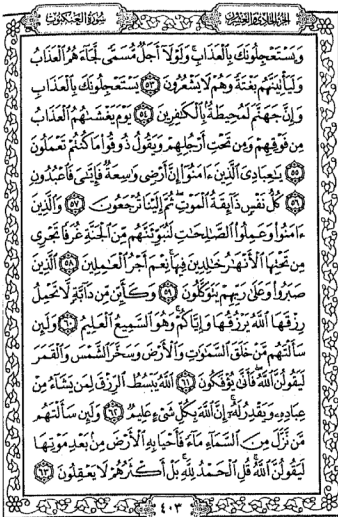 الجزء الحادي والعشرون
سورة العنكبوت
وَيَسْتَعْجِلُونَكَ بِالْعَذَابِ وَلَوْلَا أَجَلٌ مُّسَمًّى لَّجَاءَهُمُ الْعَذَابُ
وَلَيَأْتِيَنَّهُم بَغْتَةً وَهُمْ لَا يَشْعُرُونَ ٥٣ يَسْتَعْجِلُونَكَ بِالْعَذَابِ
وَإِنَّ جَهَنَّمَ لَمُحِيطَةٌ بِالْكَافِرِينَ ٥٤ يَوْمَ يَغْشَاهُمُ الْعَذَابُ
مِن فَوْقِهِمْ وَمِن تَحْتِ أَرْجُلِهِمْ وَيَقُولُ ذُوقُوا مَا كُنتُمْ تَعْمَلُونَ
٥٥ يَاعِبَادِيَ الَّذِينَ ءَامَنُوا إِنَّ أَرْضِي وَاسِعَةٌ فَإِيَّايَ فَاعْبُدُونِ
٥٦ كُلُّ نَفْسٍ ذَائِقَةُ الْمَوْتِ ثُمَّ إِلَيْنَا تُرْجَعُونَ ٥٧ وَالَّذِينَ
ءَامَنُوا وَعَمِلُوا الصَّالِحَاتِ لَنُبَوِّئَنَّهُم مِّنَ الْجَنَّةِ غُرَفًا تَجْرِي
مِن تَحْتِهَا الْأَنْهَارُ خَالِدِينَ فِيهَا نِعْمَ أَجْرُ الْعَامِلِينَ ٥٨ الَّذِينَ
صَبَرُوا وَعَلَى رَبِّهِمْ يَتَوَكَّلُونَ ٥٩ وَكَأَيِّن مِّن دَابَّةٍ لَّا تَحْمِلُ
رِزْقَهَا اللَّهُ يَرْزُقُهَا وَإِيَّاكُمْ وَهُوَ السَّمِيعُ الْعَلِيمُ ٦٠ وَلَئِن
سَأَلْتَهُم مَّنْ خَلَقَ السَّمَاوَاتِ وَالْأَرْضَ وَسَخَّرَ الشَّمْسَ وَالْقَمَرَ
لَيَقُولُنَّ اللَّهُ فَأَنَّى يُؤْفَكُونَ ٦١ اللَّهُ يَبْسُطُ الرِّزْقَ لِمَن يَشَاءُ مِنْ
عِبَادِهِ وَيَقْدِرُ لَهُ إِنَّ اللَّهَ بِكُلِّ شَيْءٍ عَلِيمٌ ٦٢ وَلَئِن سَأَلْتَهُم
مَّن نَّزَّلَ مِنَ السَّمَاءِ مَاءً فَأَحْيَا بِهِ الْأَرْضَ مِن بَعْدِ مَوْتِهَا
لَيَقُولُنَّ اللَّهُ قُلِ الْحَمْدُ لِلَّهِ بَلْ أَكْثَرُهُمْ لَا يَعْقِلُونَ ٦٣
٤٠٣